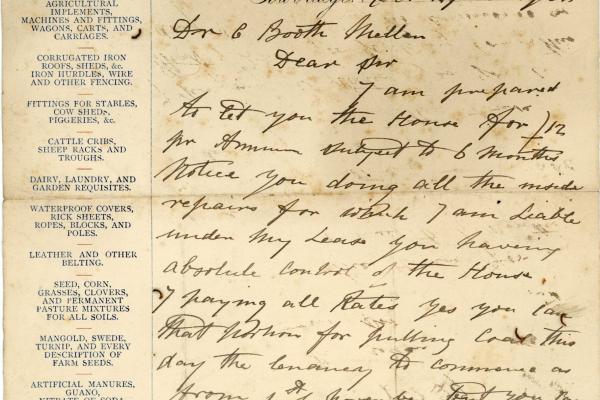 AGRICULTURAL
IMPLEMENTS,
MACHINES AND FITTINGS,
WAGONS, CARTS, AND
CARRIAGES.
CORRUGATED IRON
ROOFS, SHEDS, &c.
IRON HURDLES, WIRE
AND OTHER FENCING.
FITTINGS FOR STABLES,
COW SHEDS,
PIGGERIES, &c.
CATTLE CRIBS,
SHEEP RACKS AND
TROUGHS.
DAIRY, LAUNDRY, AND
GARDEN REQUISITES.
WATERPROOF COVERS,
RICK SHEETS,
ROPES, BLOCKS, AND
POLES.
LEATHER AND OTHER
BELTING.
SEED, CORN,
GRASSES, CLOVERS,
AND PERMANENT
PASTURE MIXTURES
FOR ALL SOILS.
MANGOLD, SWEDE,
TURNIP, AND EVERY
DESCRIPTION OF
FARM SEEDS.
ARTIFICIAL MANURES,
GUANO,
NITRATE OF SODA
Dr C Booth Mellen
Dear Sir
I am prepared
to Let you the House for £12
pr Annum subject to 6 months
Notice you doing all the inside
repairs for which I am Liable
under My Lease you having
absolute control of the House
I paying all Rates yes you can
that portion for putting Coal this
day the tenancy to commence as
from 1st